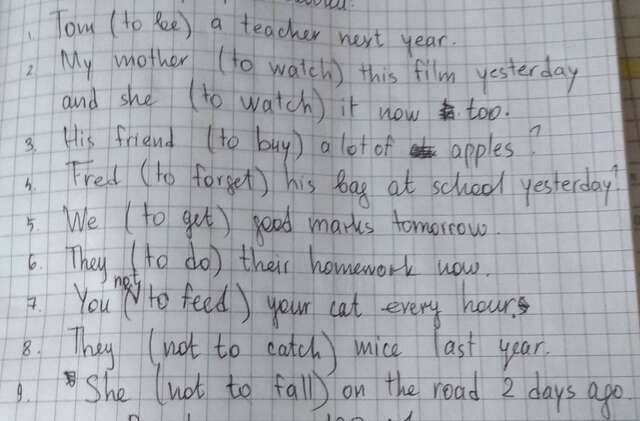 1. Tom (to be) a teacher next year.
2. My mother (to watch) this film yesterday
and she (to watch) it now too.
3. His friend (to buy) a lot of apples?
4. Fred (to forget) his bag at school yesterday?
5. We (to get) good marks tomorrow.
6. They (to do) their homework now.
7. You (not to feed) your cat every hour
8. They (not to catch) mice last year.
9. She (not to fall) on the road 2 days ago.